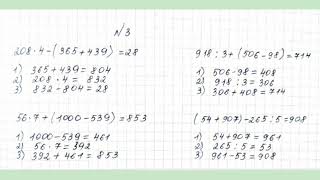 N3
208·4-(365+439)=28
1) 365+439=804
2) 208·4=832
3) 832-804=28
918:3+(506-98)=714
1) 506-98=408
2) 918:3=306
3) 306+408=714
56·7+(1000-539)=853
1) 1000-539=461
2) 56·7=392
3) 392+461=853
(54+907)-265:5=908
1) 54+907=961
2) 265:5=53
3) 961-53=908